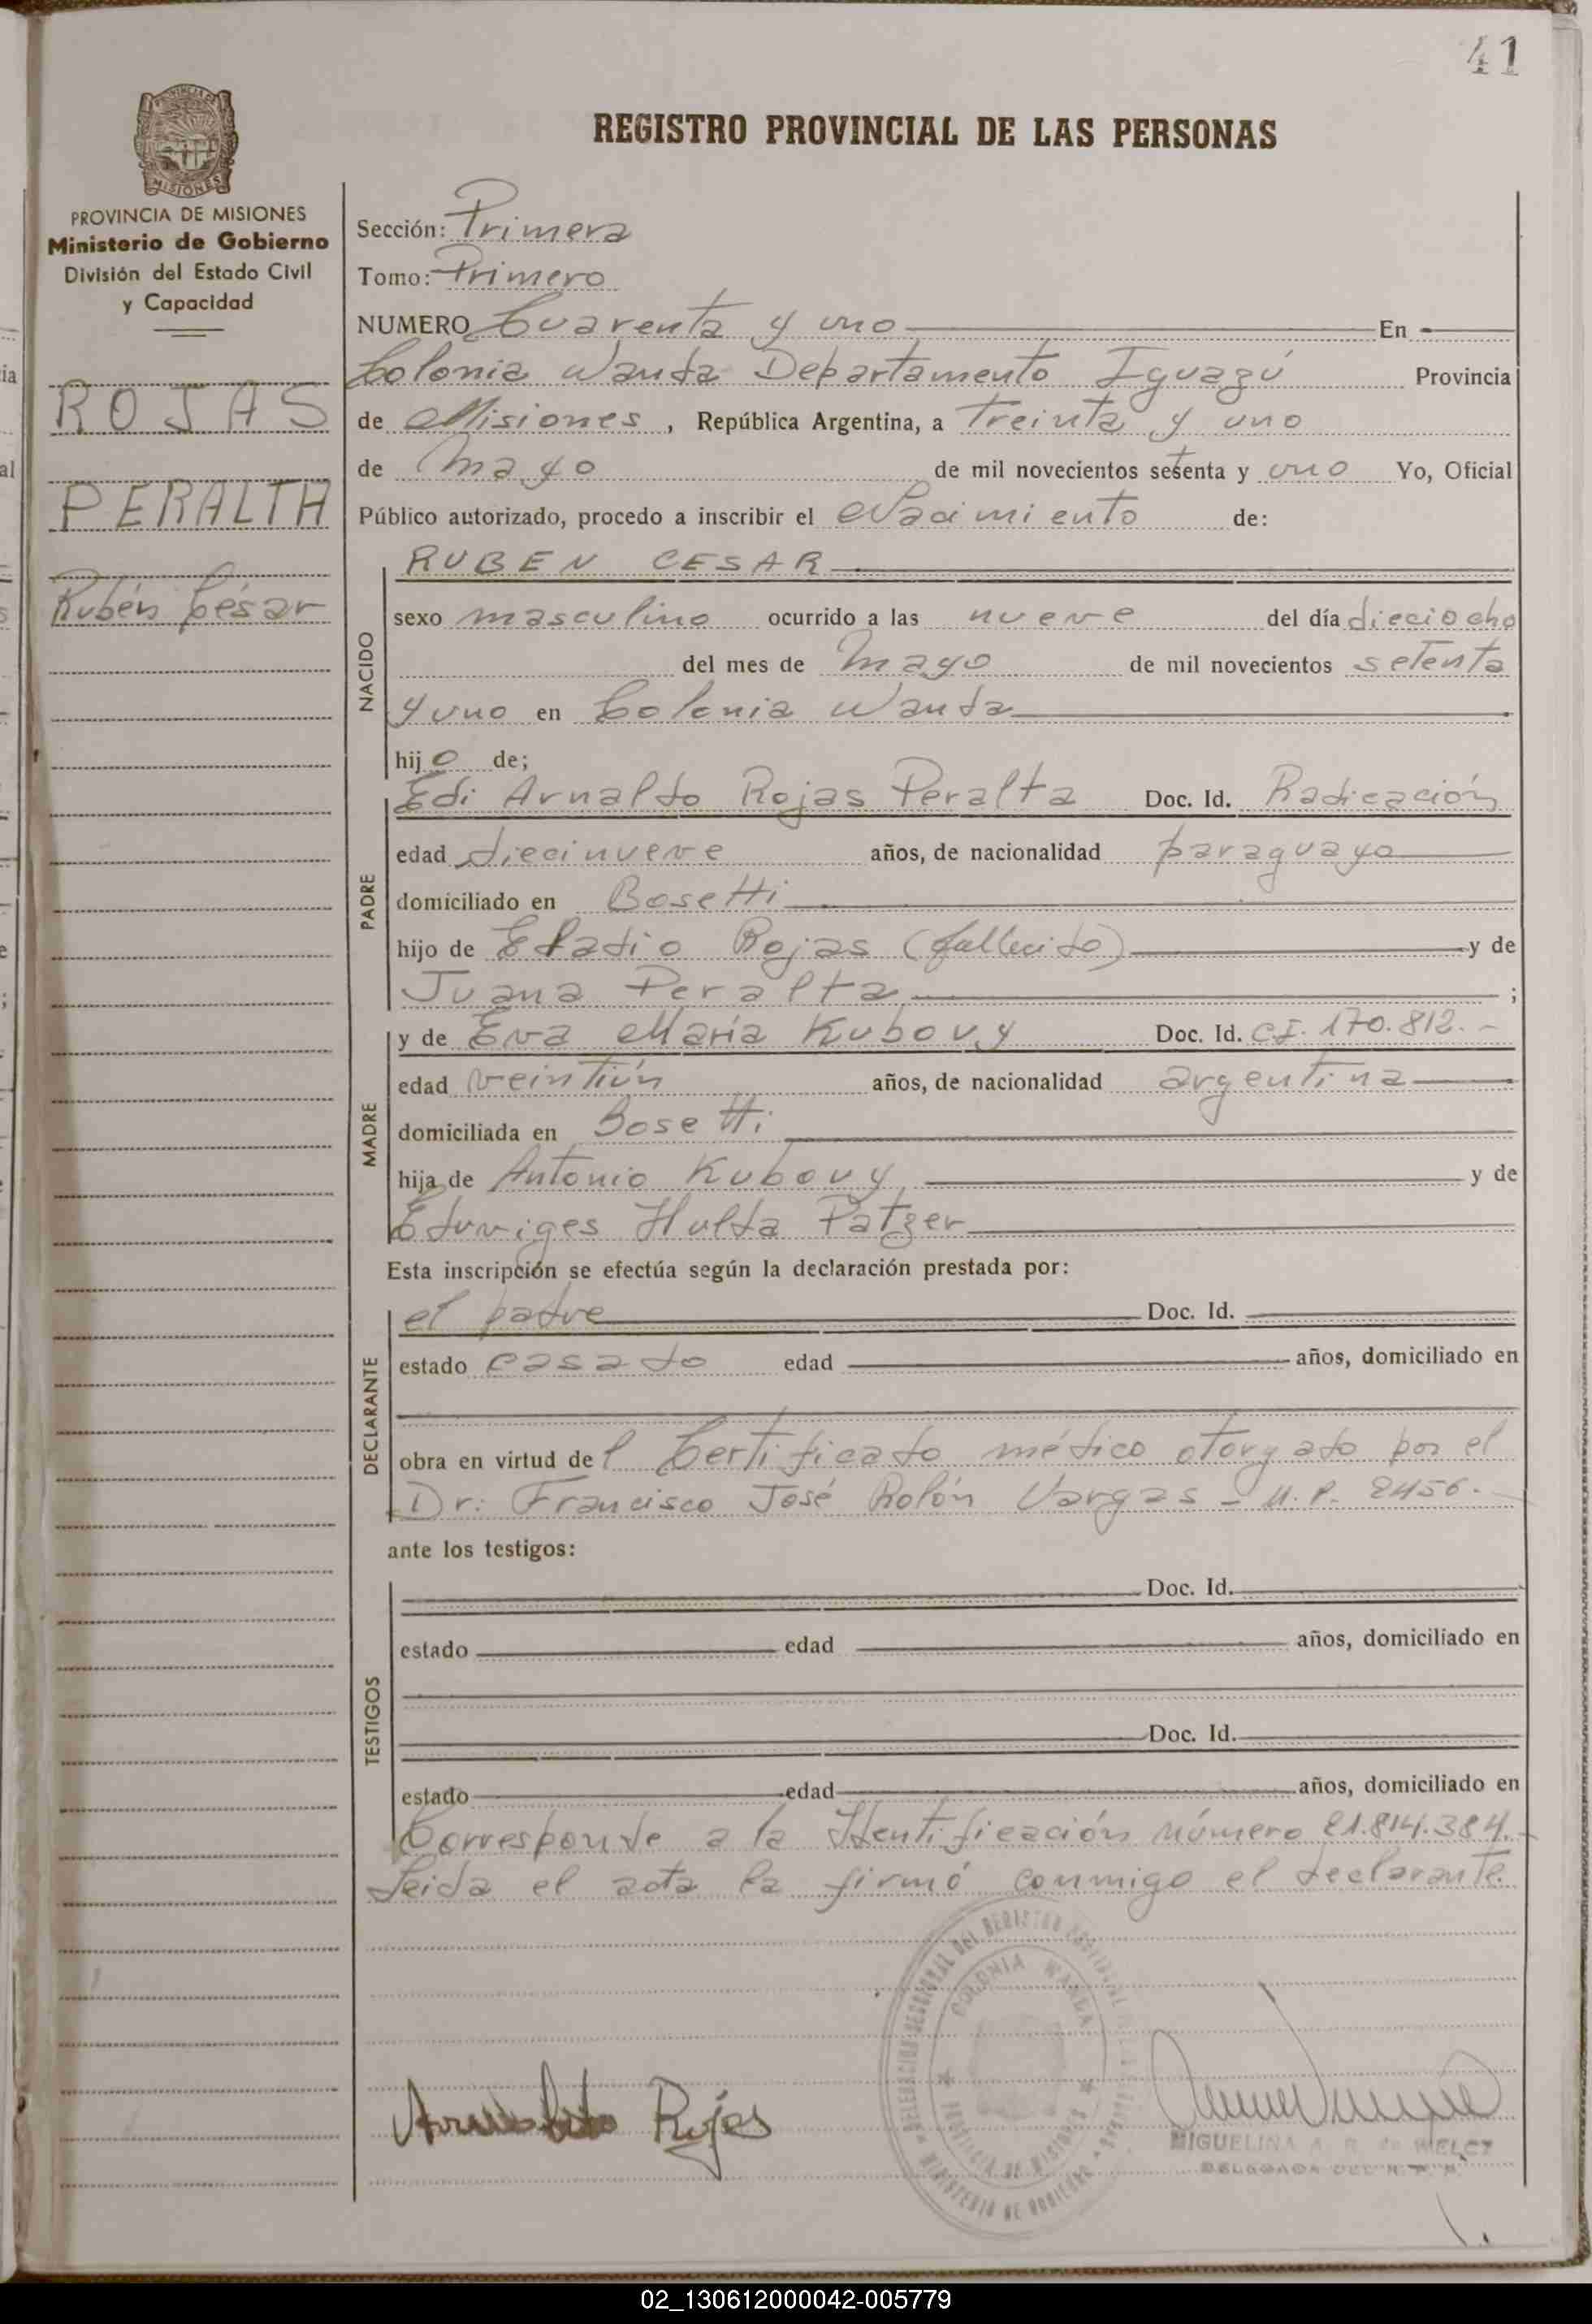 41
REGISTRO PROVINCIAL DE LAS PERSONAS
PROVINCIA DE MISIONES
Ministerio de Gobierno
División del Estado Civil
y Capacidad
ROJAS
PERALTA
Rubén César
Sección: Primera
Tomo: Primero
NUMERO Cuarenta y uno En
Colonia Wanda Departamento Iguazú Provincia
de Misiones, República Argentina, a Treinta y uno
de Mayo de mil novecientos setenta y uno Yo, Oficial
Público autorizado, procedo a inscribir el Nacimiento de:
NACIDO
RUBEN CESAR
sexo masculino ocurrido a las nueve del día dieciocho
del mes de Mayo de mil novecientos setenta
y uno en Colonia Wanda
hijo de;
PADRE
Edi Arnaldo Rojas Peralta Doc. Id. Radicación
edad diecinueve años, de nacionalidad paraguaya
domiciliado en Bosetti
hijo de Eladio Rojas (fallecido) y de
Juana Peralta ;
MADRE
y de Eva María Kubovy Doc. Id. C.I. 170.812.-
edad veintiún años, de nacionalidad argentina
domiciliada en Bosetti
hija de Antonio Kubovy y de
Eduviges Hulda Patzer
Esta inscripción se efectúa según la declaración prestada por:
DECLARANTE
el padre Doc. Id.
estado casado edad años, domiciliado en
obra en virtud del Certificado médico otorgado por el
Dr. Francisco José Rolón Vargas - M.P. 2456.-
ante los testigos:
TESTIGOS
Doc. Id.
estado edad años, domiciliado en
Doc. Id.
estado edad años, domiciliado en
Corresponde a la Identificación número 21.814.384.-
Leida el acta la firmó conmigo el declarante.
COLONIA WANDA
PROVINCIA DE MISIONES
MINISTERIO DE GOBIERNO
Rojas
MIGUELINA A. R. de WELCZ
DELEGADA DEL R. P. P.
02_130612000042-005779